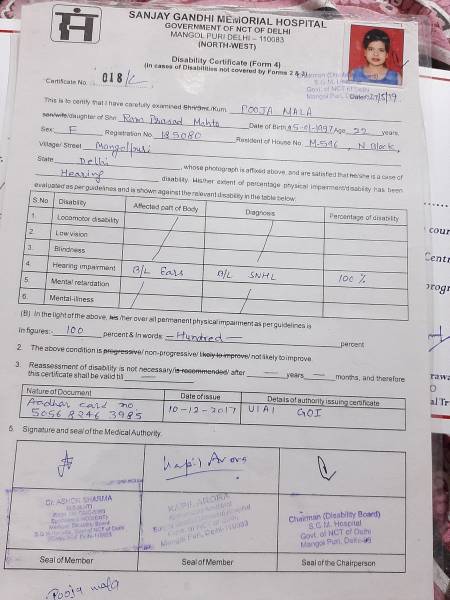 SANJAY GANDHI MEMORIAL HOSPITAL
GOVERNMENT OF NCT OF DELHI
MANGOL PURI DELHI – 110083
(NORTH-WEST)
Disability Certificate (Form 4)
(In cases of Disabilities not covered by Forms 2 & 3)
Certificate No. 018/
Date 27/5/19
This is to certify that I have carefully examined Shri/Smt./Kum. POOJA MALA
son/wife/daughter of Shri Ram Prasad Mahto Date of Birth 15-01-1997 Age 22 years,
Sex: F Registration No. 185080 Resident of House No. M-596, N Block,
Village/Street Mangolpuri
State Delhi whose photograph is affixed above, and are satisfied that he/she is a case of
Hearing disability. His/her extent of percentage physical impairment/disability has been
evaluated as per guidelines and is shown against the relevant disability in the table below:
S.No Disability Affected part of Body Diagnosis Percentage of disability
1. Locomotor disability
2. Low vision
3. Blindness
4. Hearing impairment B/L Ears B/L SNHL 100 %
5. Mental retardation
6. Mental-illness
(B) In the light of the above, his /her over all permanent physical impairment as per guidelines is
In figures:- 100 percent & In words:- Hundred percent
2. The above condition is progressive/ non-progressive/ likely to improve/ not likely to improve.
3. Reassessment of disability is not necessary/is recommended/ after years months, and therefore
this certificate shall be valid till
Nature of Document Date of issue Details of authority issuing certificate
Aadhar card no 10-12-2017 UIAI GOI
5056 8246 3985
5. Signature and seal of the Medical Authority.
Kapil Arora
Dr. ASHOK SHARMA
KAPIL ARORA
Mangol Puri, Delhi-110083
Chairman (Disability Board)
S.G.M. Hospital
Govt. of NCT of Delhi
Mangol Puri, Delhi-83
Seal of Member Seal of Member Seal of the Chairperson
Pooja mala
cour
Centr
progr